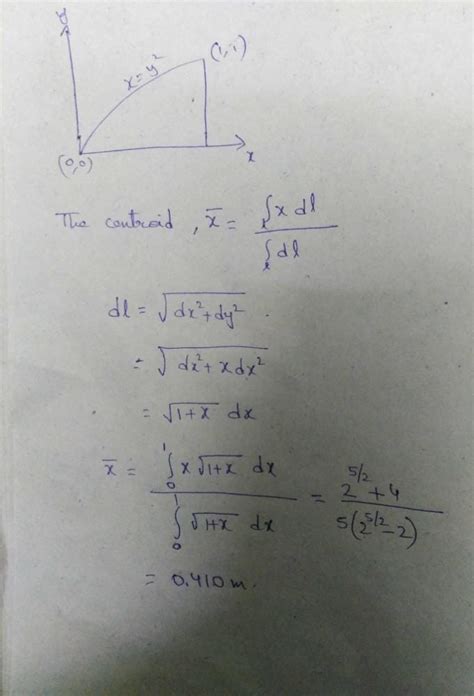 y
x = y²
(1,1)
(0,0)
x
The centroid , x̄ = ∫ₗ x dl / ∫ₗ dl
dl = √(dx²+dy²) .
= √(dx²+x dx²)
= √(1+x) dx
x̄ = ∫₀¹ x √(1+x) dx / ∫₀¹ √(1+x) dx = (2^(5/2) + 4) / (5(2^(5/2) - 2))
= 0.410 m.